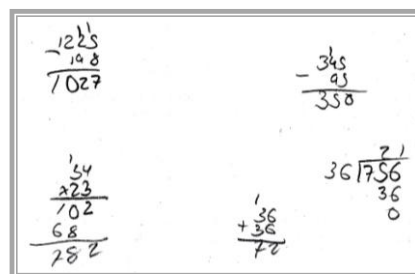 1 1
1225
- 198
1027
1
345
- 95
350
1
34
×23
102
68
782
1
36
+ 36
72
21
36 756
36
0